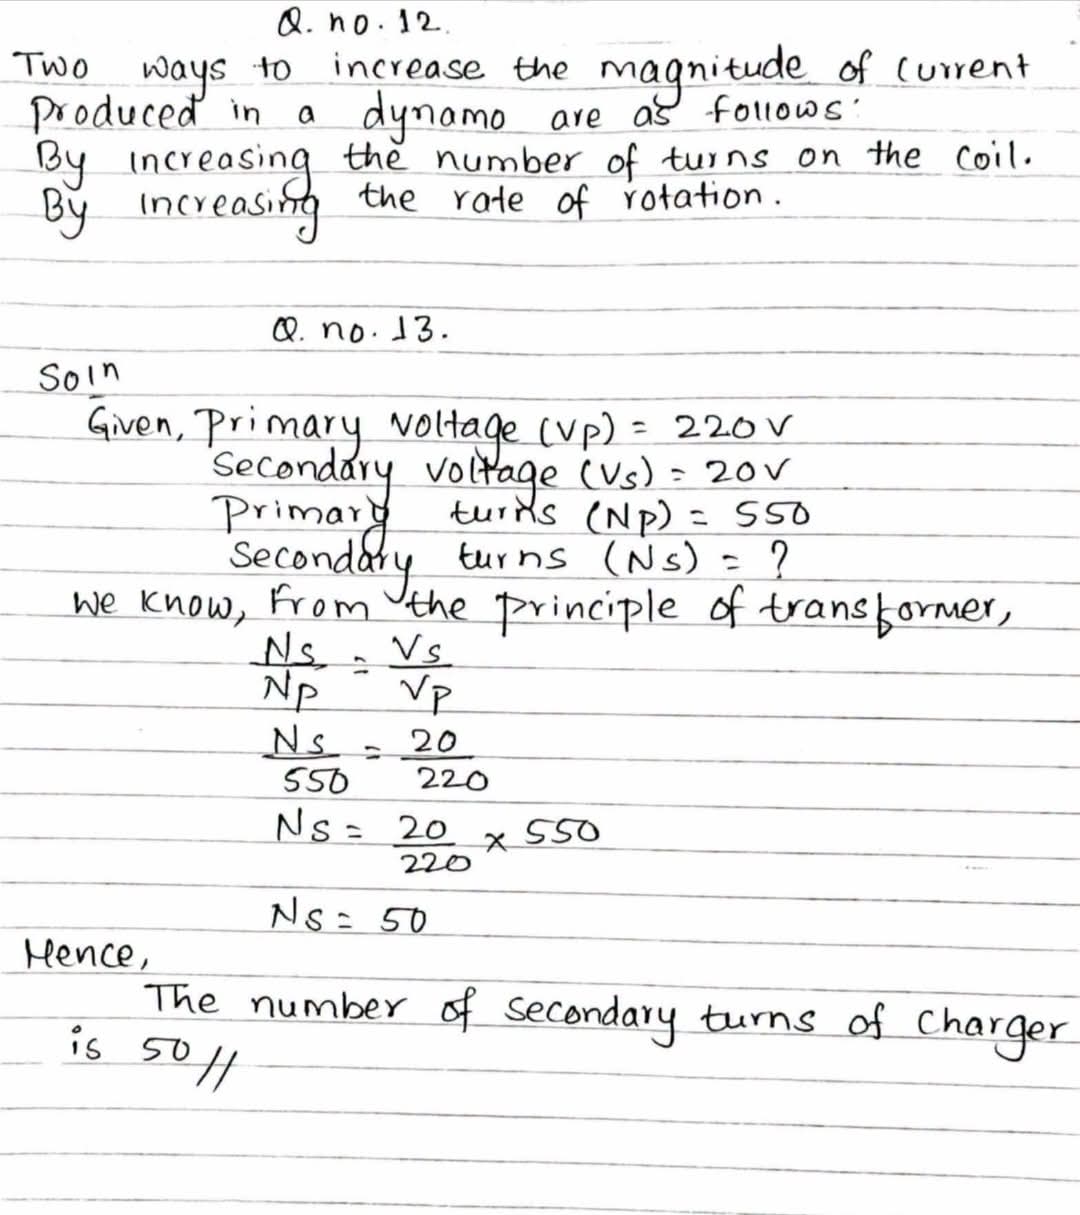 Q. no. 12.
Two ways to increase the magnitude of current
produced in a dynamo are as follows:
By increasing the number of turns on the coil.
By increasing the rate of rotation.
Q. no. 13.
Soln
Given, Primary voltage (Vp) = 220 V
Secondary voltage (Vs) = 20 V
Primary turns (Np) = 550
Secondary turns (Ns) = ?
We know, From the principle of transformer,
Ns/Np = Vs/Vp
Ns/550 = 20/220
Ns = 20/220 × 550
Ns = 50
Hence,
The number of secondary turns of Charger
is 50 //